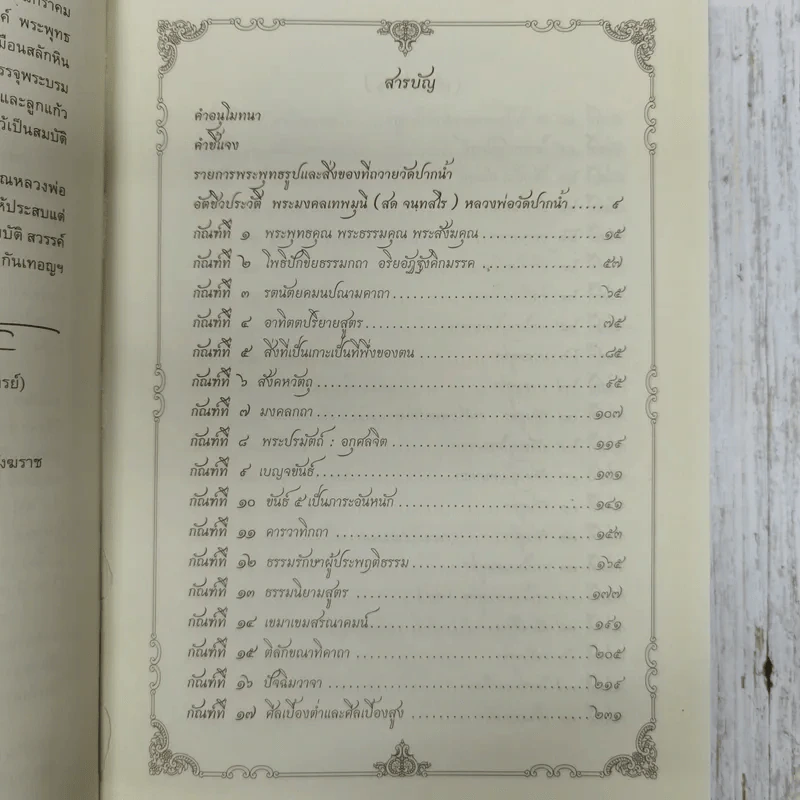 นกราคม
ค์ พระพุทธ
มือนสลักหิน
รรจุพระบรม
และลูกแก้ว
ว้เป็นสมบัติ
ณหลวงพ่อ
ห้ประสบแต่
มบัติ สวรรค์
กันเทอญฯ
ารย์)
ังฆราช
สารบัญ
คำอนุโมทนา
คำชี้แจง
รายการพระพุทธรูปและสิ่งของที่ถวายวัดปากน้ำ
อัตชีวประวัติ พระมงคลเทพมุนี (สด จนฺทสโร) หลวงพ่อวัดปากน้ำ ..... ๙
กัณฑ์ที่ ๑ พระพุทธคุณ พระธรรมคุณ พระสังฆคุณ ..... ๑๕
กัณฑ์ที่ ๒ โพธิปักขิยธรรมกถา อริยอัฏฐังคิกมรรค ..... ๕๗
กัณฑ์ที่ ๓ รตนัตยคมนปณามคาถา ..... ๖๕
กัณฑ์ที่ ๔ อาทิตตปริยายสูตร ..... ๗๕
กัณฑ์ที่ ๕ สิ่งที่เป็นเกาะเป็นที่พึ่งของตน ..... ๘๕
กัณฑ์ที่ ๖ สังคหวัตถุ ..... ๙๕
กัณฑ์ที่ ๗ มงคลกถา ..... ๑๐๗
กัณฑ์ที่ ๘ พระปรมัตถ์ : อกุศลจิต ..... ๑๑๙
กัณฑ์ที่ ๙ เบญจขันธ์ ..... ๑๓๑
กัณฑ์ที่ ๑๐ ขันธ์ ๕ เป็นภาระอันหนัก ..... ๑๔๑
กัณฑ์ที่ ๑๑ คารวาทิกถา ..... ๑๕๓
กัณฑ์ที่ ๑๒ ธรรมรักษาผู้ประพฤติธรรม ..... ๑๖๕
กัณฑ์ที่ ๑๓ ธรรมนิยามสูตร ..... ๑๗๗
กัณฑ์ที่ ๑๔ เขมาเขมสรณาคมน์ ..... ๑๙๑
กัณฑ์ที่ ๑๕ ติลักขณาทิคาถา ..... ๒๐๕
กัณฑ์ที่ ๑๖ ปัจฉิมวาจา ..... ๒๑๙
กัณฑ์ที่ ๑๗ ศีลเบื้องต่ำและศีลเบื้องสูง ..... ๒๓๑